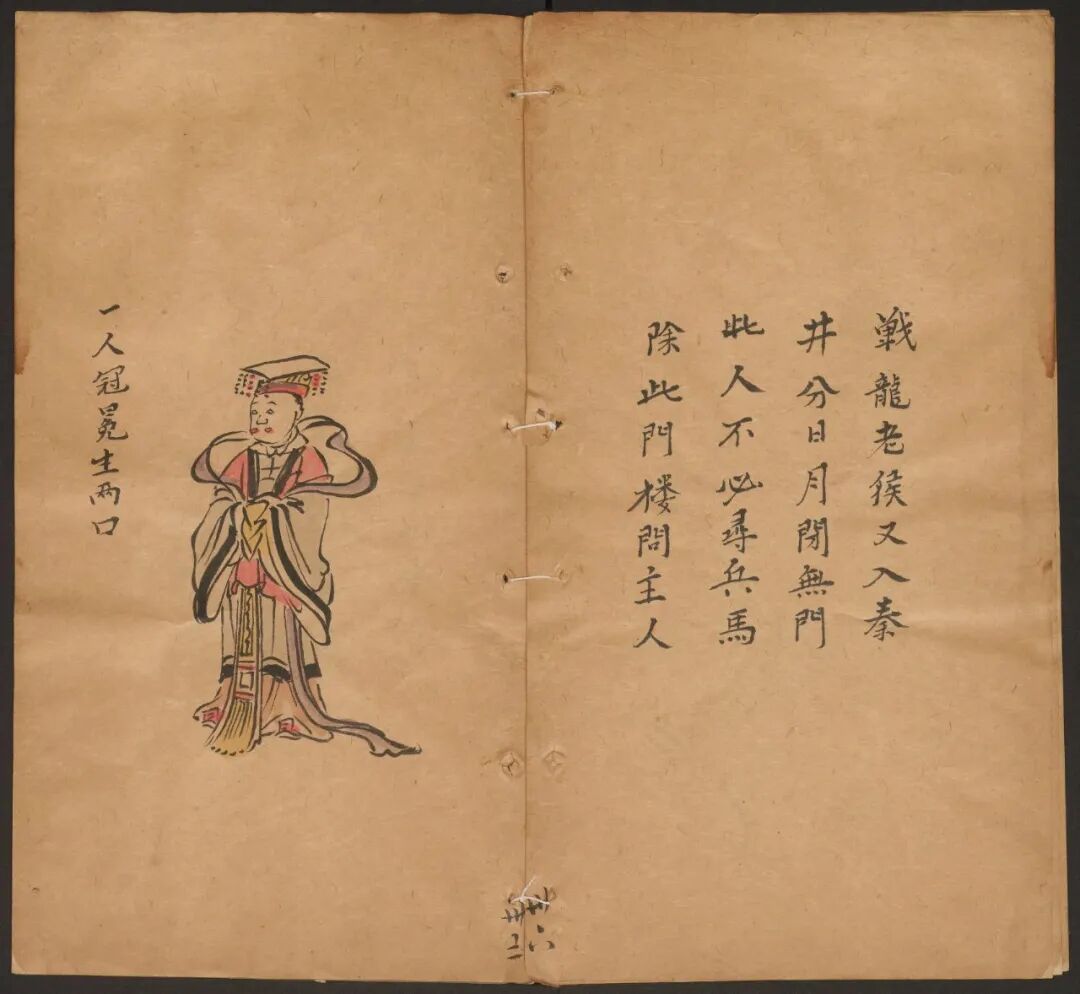 戦龍老猴又入秦
井分日月閉無門
此人不必尋兵馬
除此門楼問主人
一人冠冕士两口
卅六
卅二